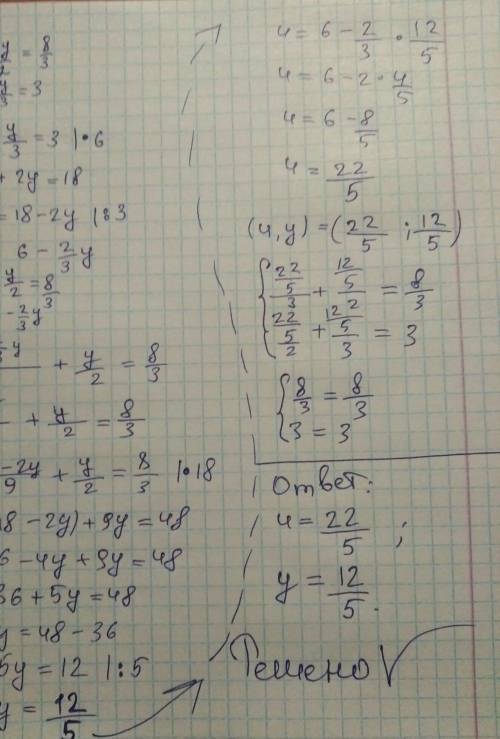 y/2 = 8/3
y/3 = 3
y/3 = 3 |·6
+ 2y = 18
= 18 - 2y |:3
6 - 2/3 y
y/2 = 8/3
- 2/3 y
+ y/2 = 8/3
+ y/2 = 8/3
-2y/9 + y/2 = 8/3 |·18
8 - 2y) + 9y = 48
6 - 4y + 9y = 48
36 + 5y = 48
y = 48 - 36
5y = 12 |:5
y = 12/5
ч = 6 - 2/3 · 12/5
ч = 6 - 2 · 4/5
ч = 6 - 8/5
ч = 22/5
(ч, y) = (22/5 ; 12/5)
{ 22/5/3 + 12/5/2 = 8/3
22/5/2 + 12/5/3 = 3
{ 8/3 = 8/3
3 = 3
Ответ:
ч = 22/5 ;
y = 12/5.
Решено √